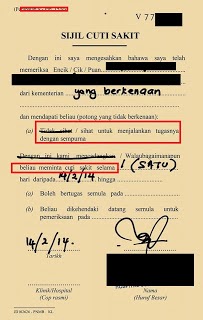 V 77
SIJIL CUTI SAKIT
Dengan ini saya mengesahkan bahawa saya telah
memeriksa Encik / Cik / Puan
dari kementerian yang berkenaan
dan mendapati beliau (potong yang tidak berkenaan):
(a) Tidak sihat / sihat untuk menjalankan tugasnya
dengan sempurna
Dengan ini kami mencadangkan / Walaubagaimanapun
beliau meminta cuti sakit selama 1 (SATU)
hari daripada 14/2/14. hingga
(a) Boleh bertugas semula pada
(b) Beliau dikehendaki datang semula untuk
pemeriksaan pada
14/2/14.
Tarikh
Klinik/Hospital
(Cop rasmi)
Nama
(Huruf Besar)